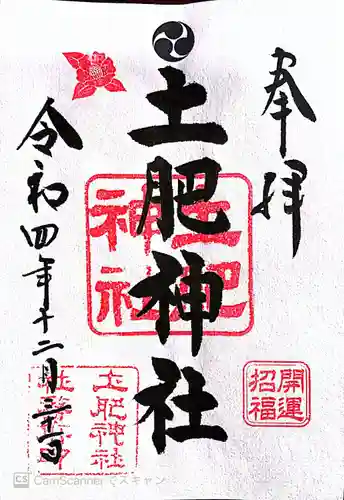 奉拝
土肥神社
土肥神社
開運
招福
令和四年十二月三十日
土肥神社
CS CamScanner でスキャン